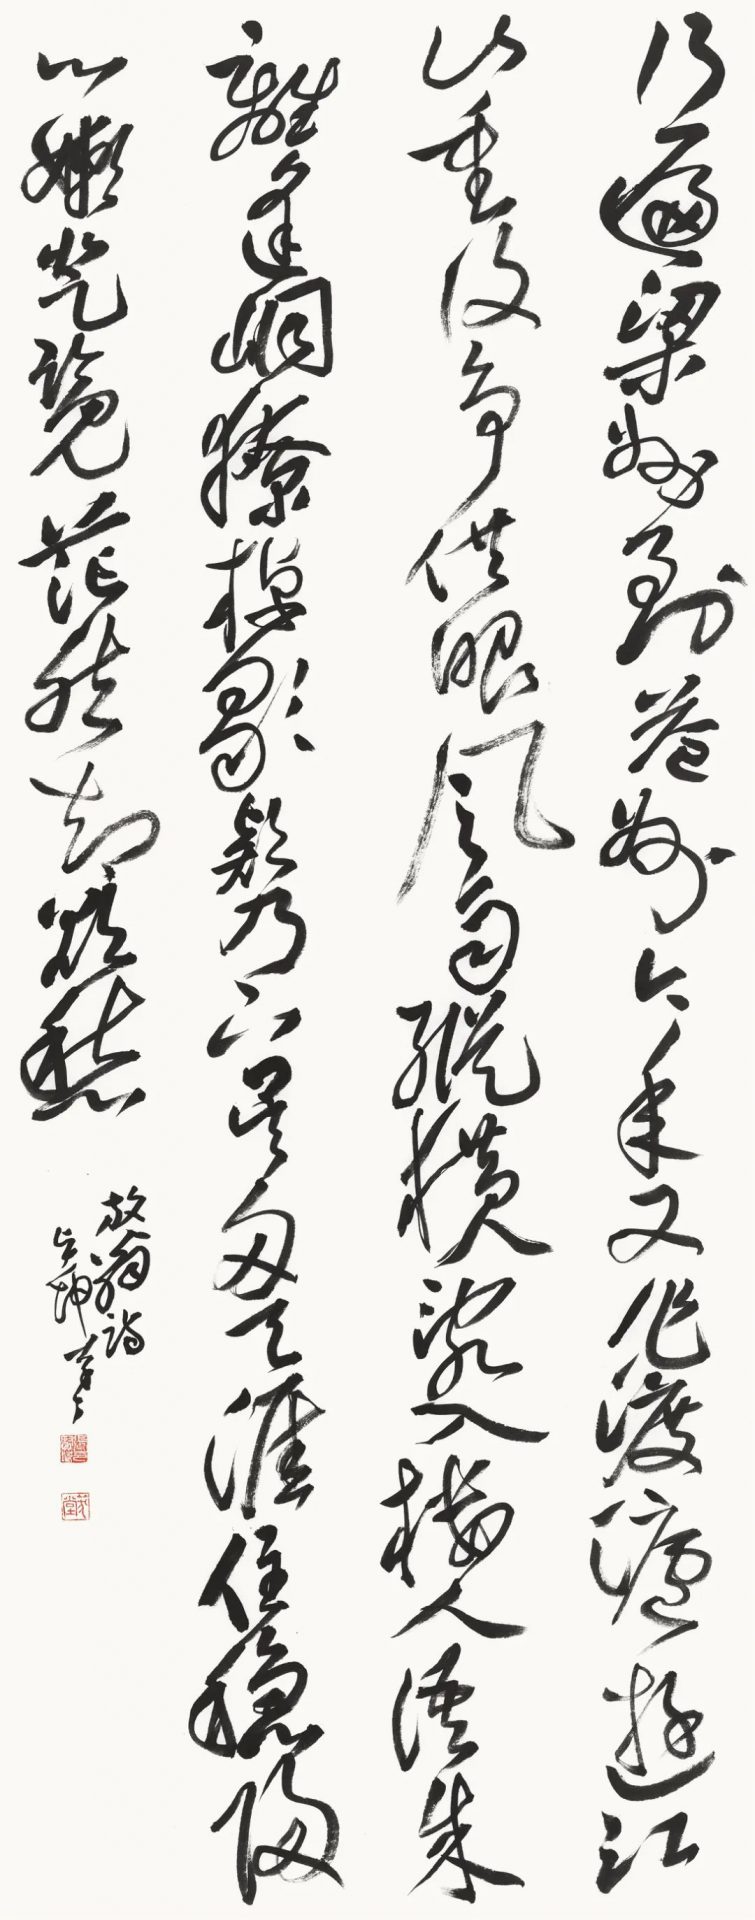 行遍梁州到益州今年又作渡瀘遊江
山重復爭供眼風雨縱橫亂入樓人語朱
離逢峒獠棹歌欸乃下吳舟天涯住穩歸
心嬾登覽茫然却欲愁
放翁詩